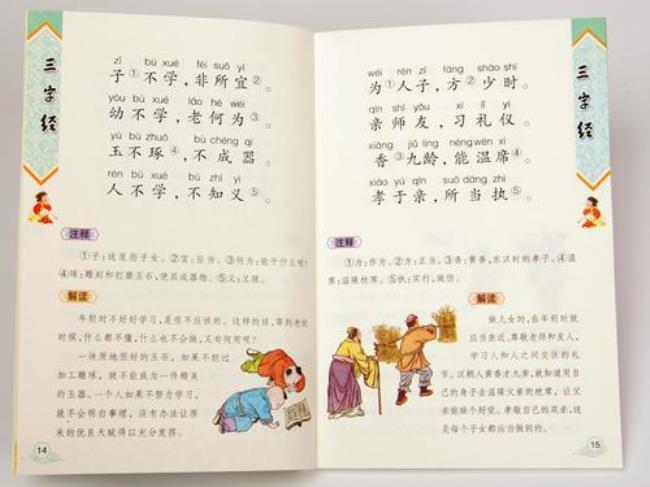 三字经
zǐ bù xué fēi suǒ yí
子①不学，非所宜②。
yòu bù xué lǎo hé wéi
幼不学，老何为③。
yù bù zhuó bù chéng qì
玉不琢④，不成器。
rén bù xué bù zhī yì
人不学，不知义⑤。
注释
①子：这里指子女。②宜：应当。③何为：能干什么呢？
④琢：雕刻和打磨玉石，使其成器物。⑤义：义理。
解读
年轻时不好好学习，是很不应该的。这样的话，等到老的
时候，什么都不懂，什么也不会做，又有何用呢？
一块质地很好的玉石，如果不经过
加工雕琢，就不能成为一件精美
的玉器。一个人如果不努力学习，
就不会明白事理，没有办法让原
来的优良天赋得以充分发挥。
14
三字经
wéi rén zǐ fāng shào shí
为①人子，方②少时。
qīn shī yǒu xí lǐ yí
亲师友，习礼仪。
xiāng jiǔ líng néng wēn xí
香③九龄，能温席④。
xiào yú qīn suǒ dāng zhí
孝于亲，所当执⑤。
注释
①为：作为。②方：正当。③香：黄香，东汉时的孝子。④温
席：温暖枕席。⑤执：实行，做到。
解读
做儿女的，在年轻时就
应当亲近、尊敬老师和友人，
学习人和人之间交往的礼
节。汉朝人黄香才九岁，就知道用自
己的身子去温暖父亲的枕席，让父
亲能睡个好觉。孝敬自己的双亲，这
是每个子女都应当做到的。
15